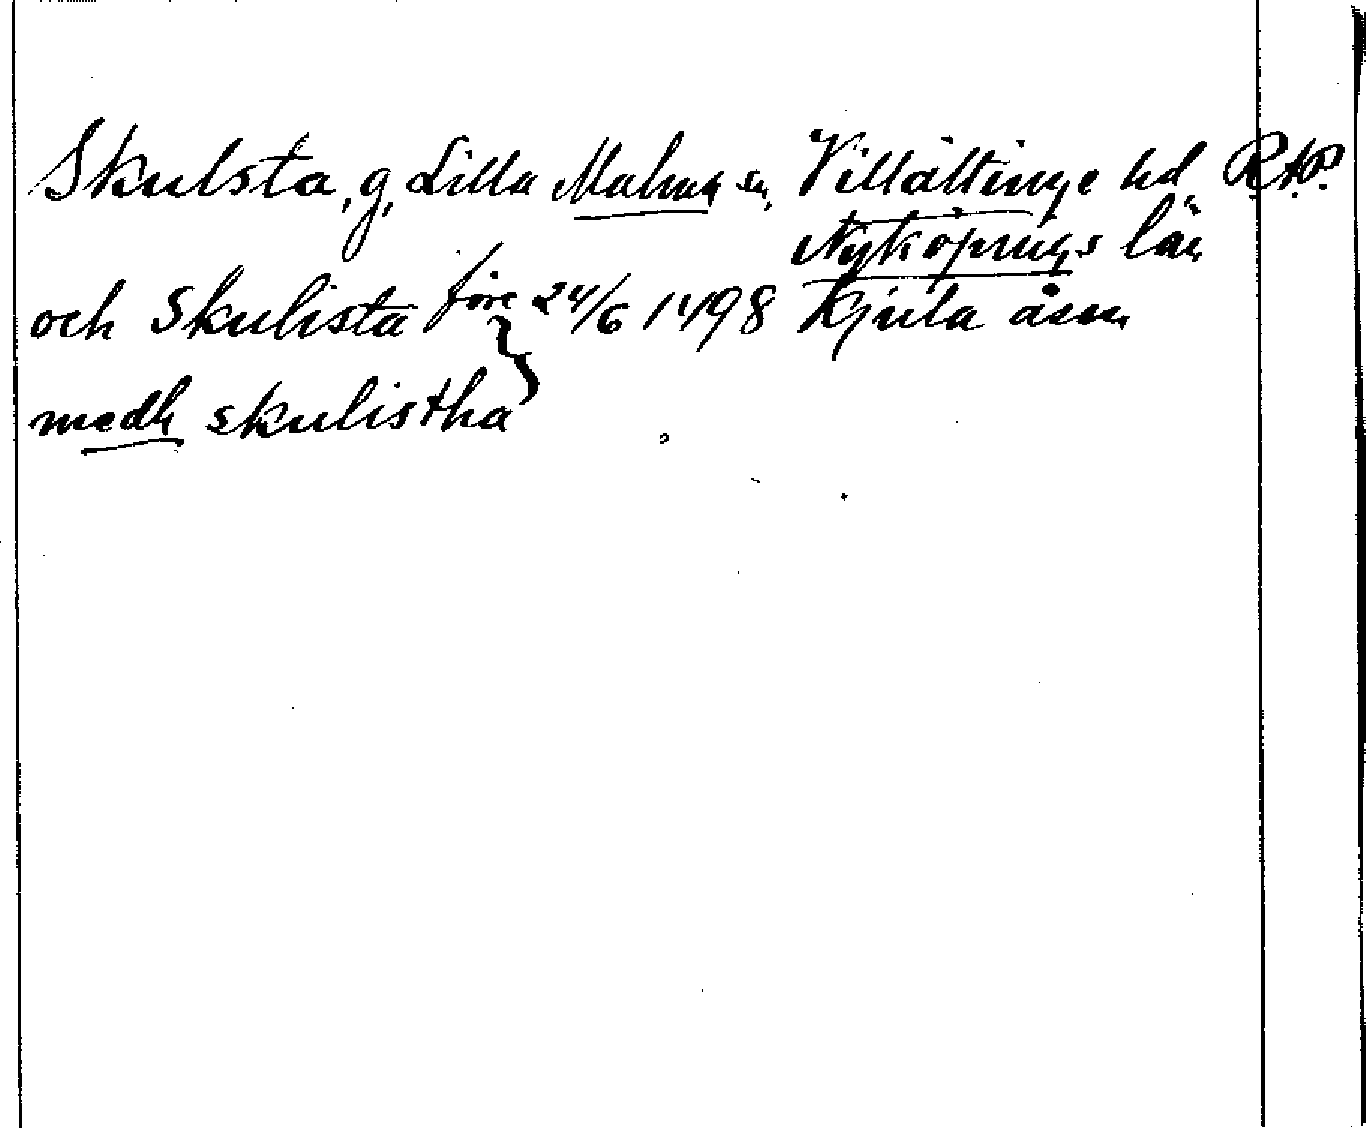 Skulsta, g, Lilla Malma sn, Villåttinge hd. R.A.P.
Nyköpings län
och Skulista före 24/6 1498 Kjula åsen
medh skulistha